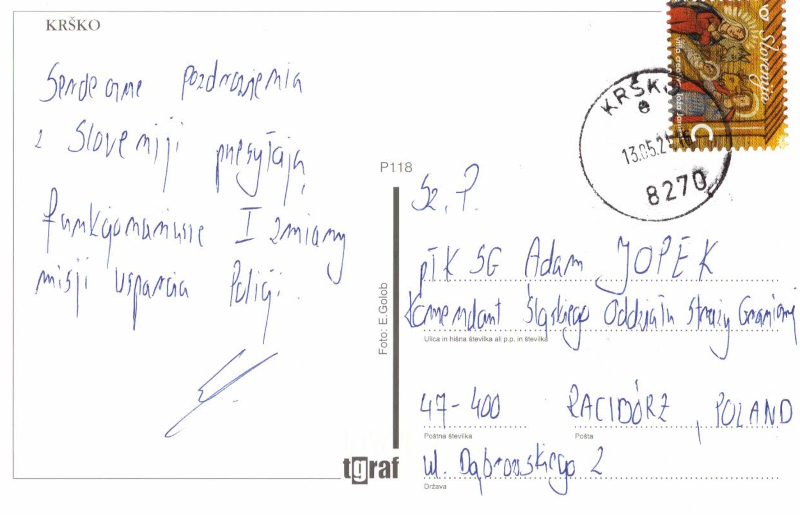 KRŠKO
Serdeczne pozdrowienia
z Słoveniji przesyłają
funkcjonariusze I zmiany
misji wsparcia Policji.
P118
Foto: E.Golob
tgraf
Slovenija
C
KRŠKO
13.05.21-16
8270
Sz. P.
płk SG Adam JOPEK
Komendant Śląskiego Oddziału Straży Granicznej
Ulica in hišna številka ali p.p. in številka
47-400 RACIBÓRZ, POLAND
Poštna številka Pošta
ul. Dąbrowskiego 2
Država